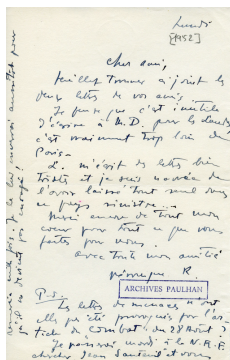 Lundi
[1952]
Cher ami,
Veuillez trouver ci-joint les
deux lettres de vos amis.
Je pense que c'est inutile
d'écrire à M. D. pour les Landes
c'est vraiment trop loin de
Paris.
L. m'écrit des lettres bien
tristes et je suis navrée de
l'avoir laissé tout seul dans
ce pays sinistre...
Merci encore de tout mon
cœur pour tout ce que vous
faites pour nous.
Avec toute mon amitié
Véronique R.
ARCHIVES PAULHAN
P.S.
Les lettres de menaces n'ont
elles pas été provoquées par l'ar-
ticle de Combat du 28 Août ?
Je passerai mardi à la N.R.F.
chercher Jean Santeuil et vous